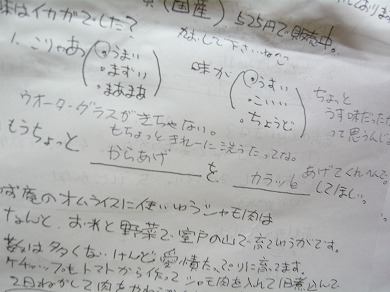 味はイカがでしたか?
(国産) 525円で販売中。
1. こりゃあ
・うまい
・まずい
・まあまあ
味が
・うすい
・こいい
・ちょうど
ちょっと
うす味だった
って思うんじ
ウオーターグラスがきちゃない。
もちょっときれーに洗うたってな。
もうちょっと からあげ を カラッと あげてくれへんで
してほしい。
庵のオムライスに使いゆうシャモ肉は
なんと、おれと野菜で室戸の山で育ていうがです。
数は多くないけんど愛情たっぷりに育てます。
ケチャップもトマトから作って シャモ肉を入れて1日煮込んで
2日ねかして肉を